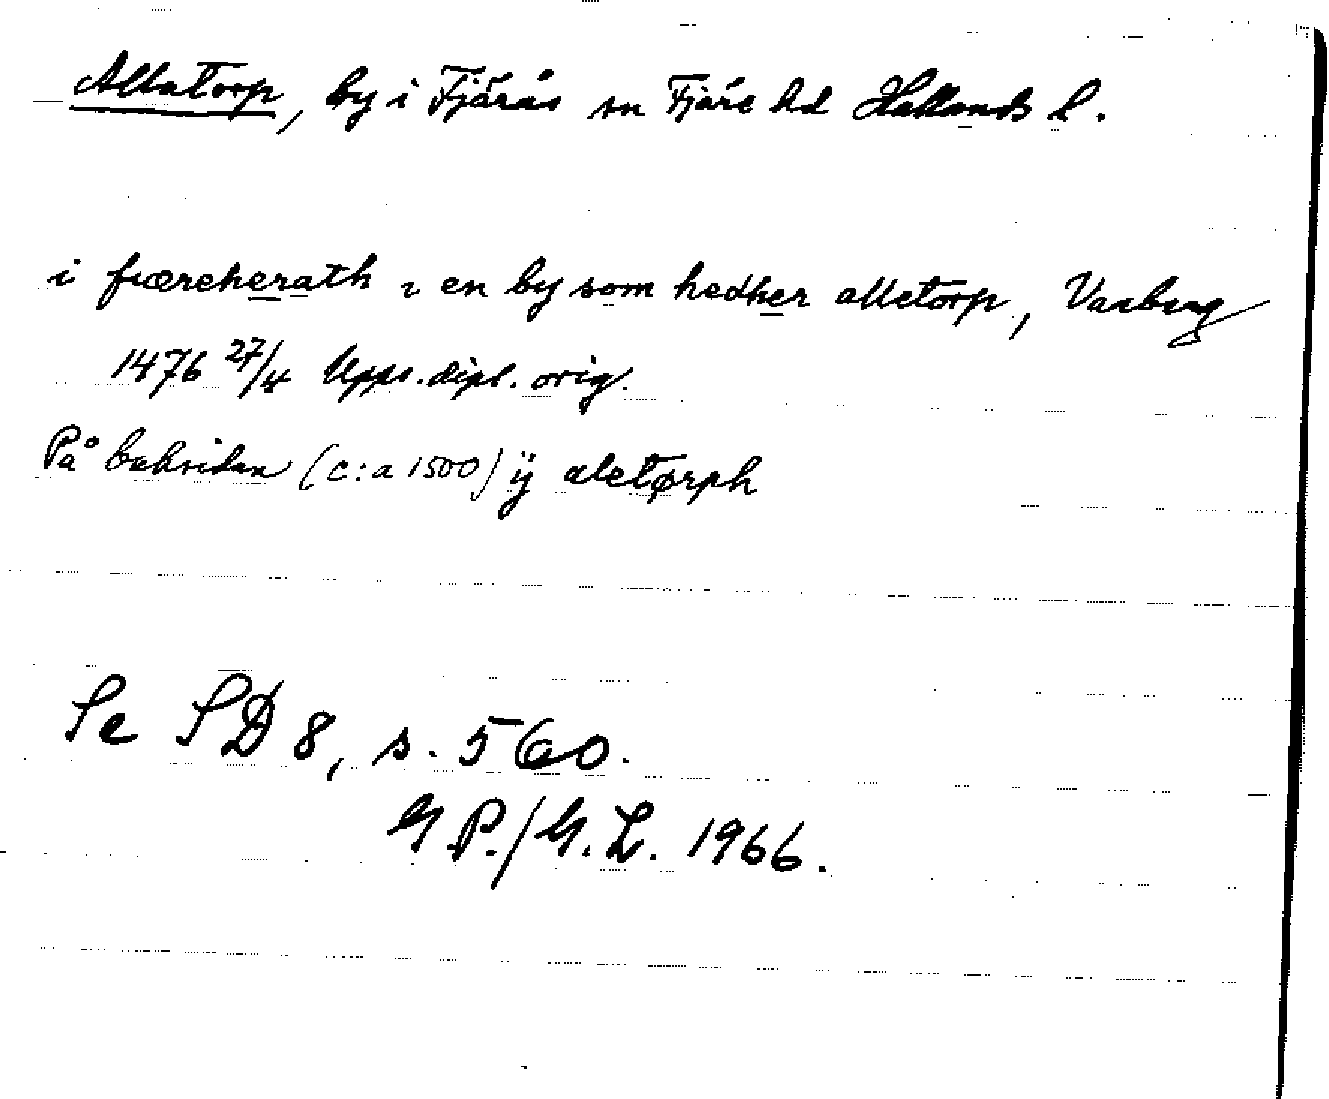 Allatorp, by i Fjärås sn Fjäre hd Hallands l.
i fiæreherath ı en by som hedher alletorp, Varberg
1476 27/4 Upps. dipl. orig.
På baksidan (c:a 1500) ij aletørph
Se SD 8, s. 560.
G P./G. L. 1966.